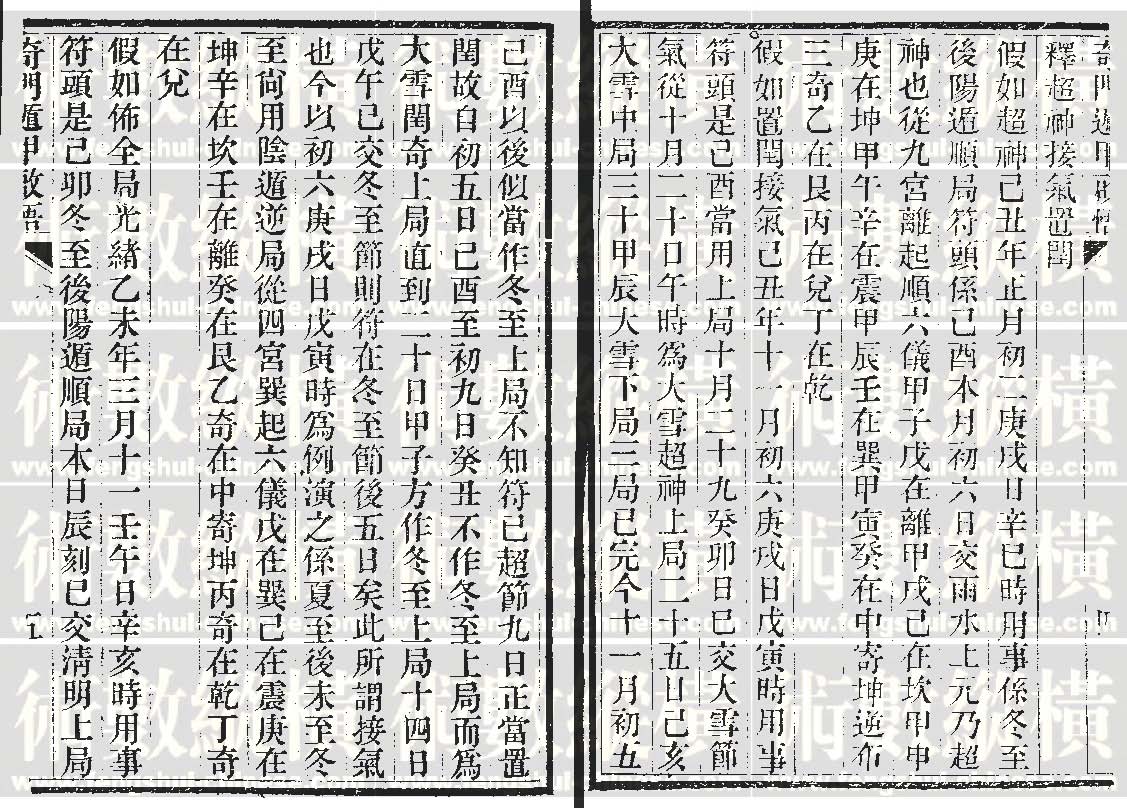 奇門遁甲啟悟
四
釋超神接氣置閏
假如超神己丑年正月初二庚戌日辛巳時用事係冬至
後陽遁順局符頭係己酉本月初六日交雨水上元乃超
神也從九宮離起順六儀甲子戊在離甲戌己在坎甲申
庚在坤甲午辛在震甲辰壬在巽甲寅癸在中寄坤逆布
三奇乙在艮丙在兌丁在乾
假如置閏接氣己丑年十一月初六庚戌日戊寅時用事
符頭是己酉當用上局十月二十九癸卯日巳交大雪節
氣從十月二十日午時為大雪超神上局二十五日己亥
大雪中局三十甲辰大雪下局三局已完今十一月初五
己酉以後似當作冬至上局不知符已超節九日正當置
閏故自初五日己酉至初九日癸丑不作冬至上局而為
大雪閏奇上局直到二十日甲子方作冬至上局十四日
戊午已交冬至節則符在冬至節後五日矣此所謂接氣
也今以初六庚戌日戊寅時為例演之係夏至後未至冬
至尚用陰遁逆局從四宮巽起六儀戊在巽己在震庚在
坤辛在坎壬在離癸在艮乙奇在中寄坤丙奇在乾丁奇
在兌
假如佈全局光緒乙未年三月十一壬午日辛亥時用事
符頭是己卯冬至後陽遁順局本日辰刻已交清明上局
奇門遁甲啟悟
五
www.fengshui-chinese.com